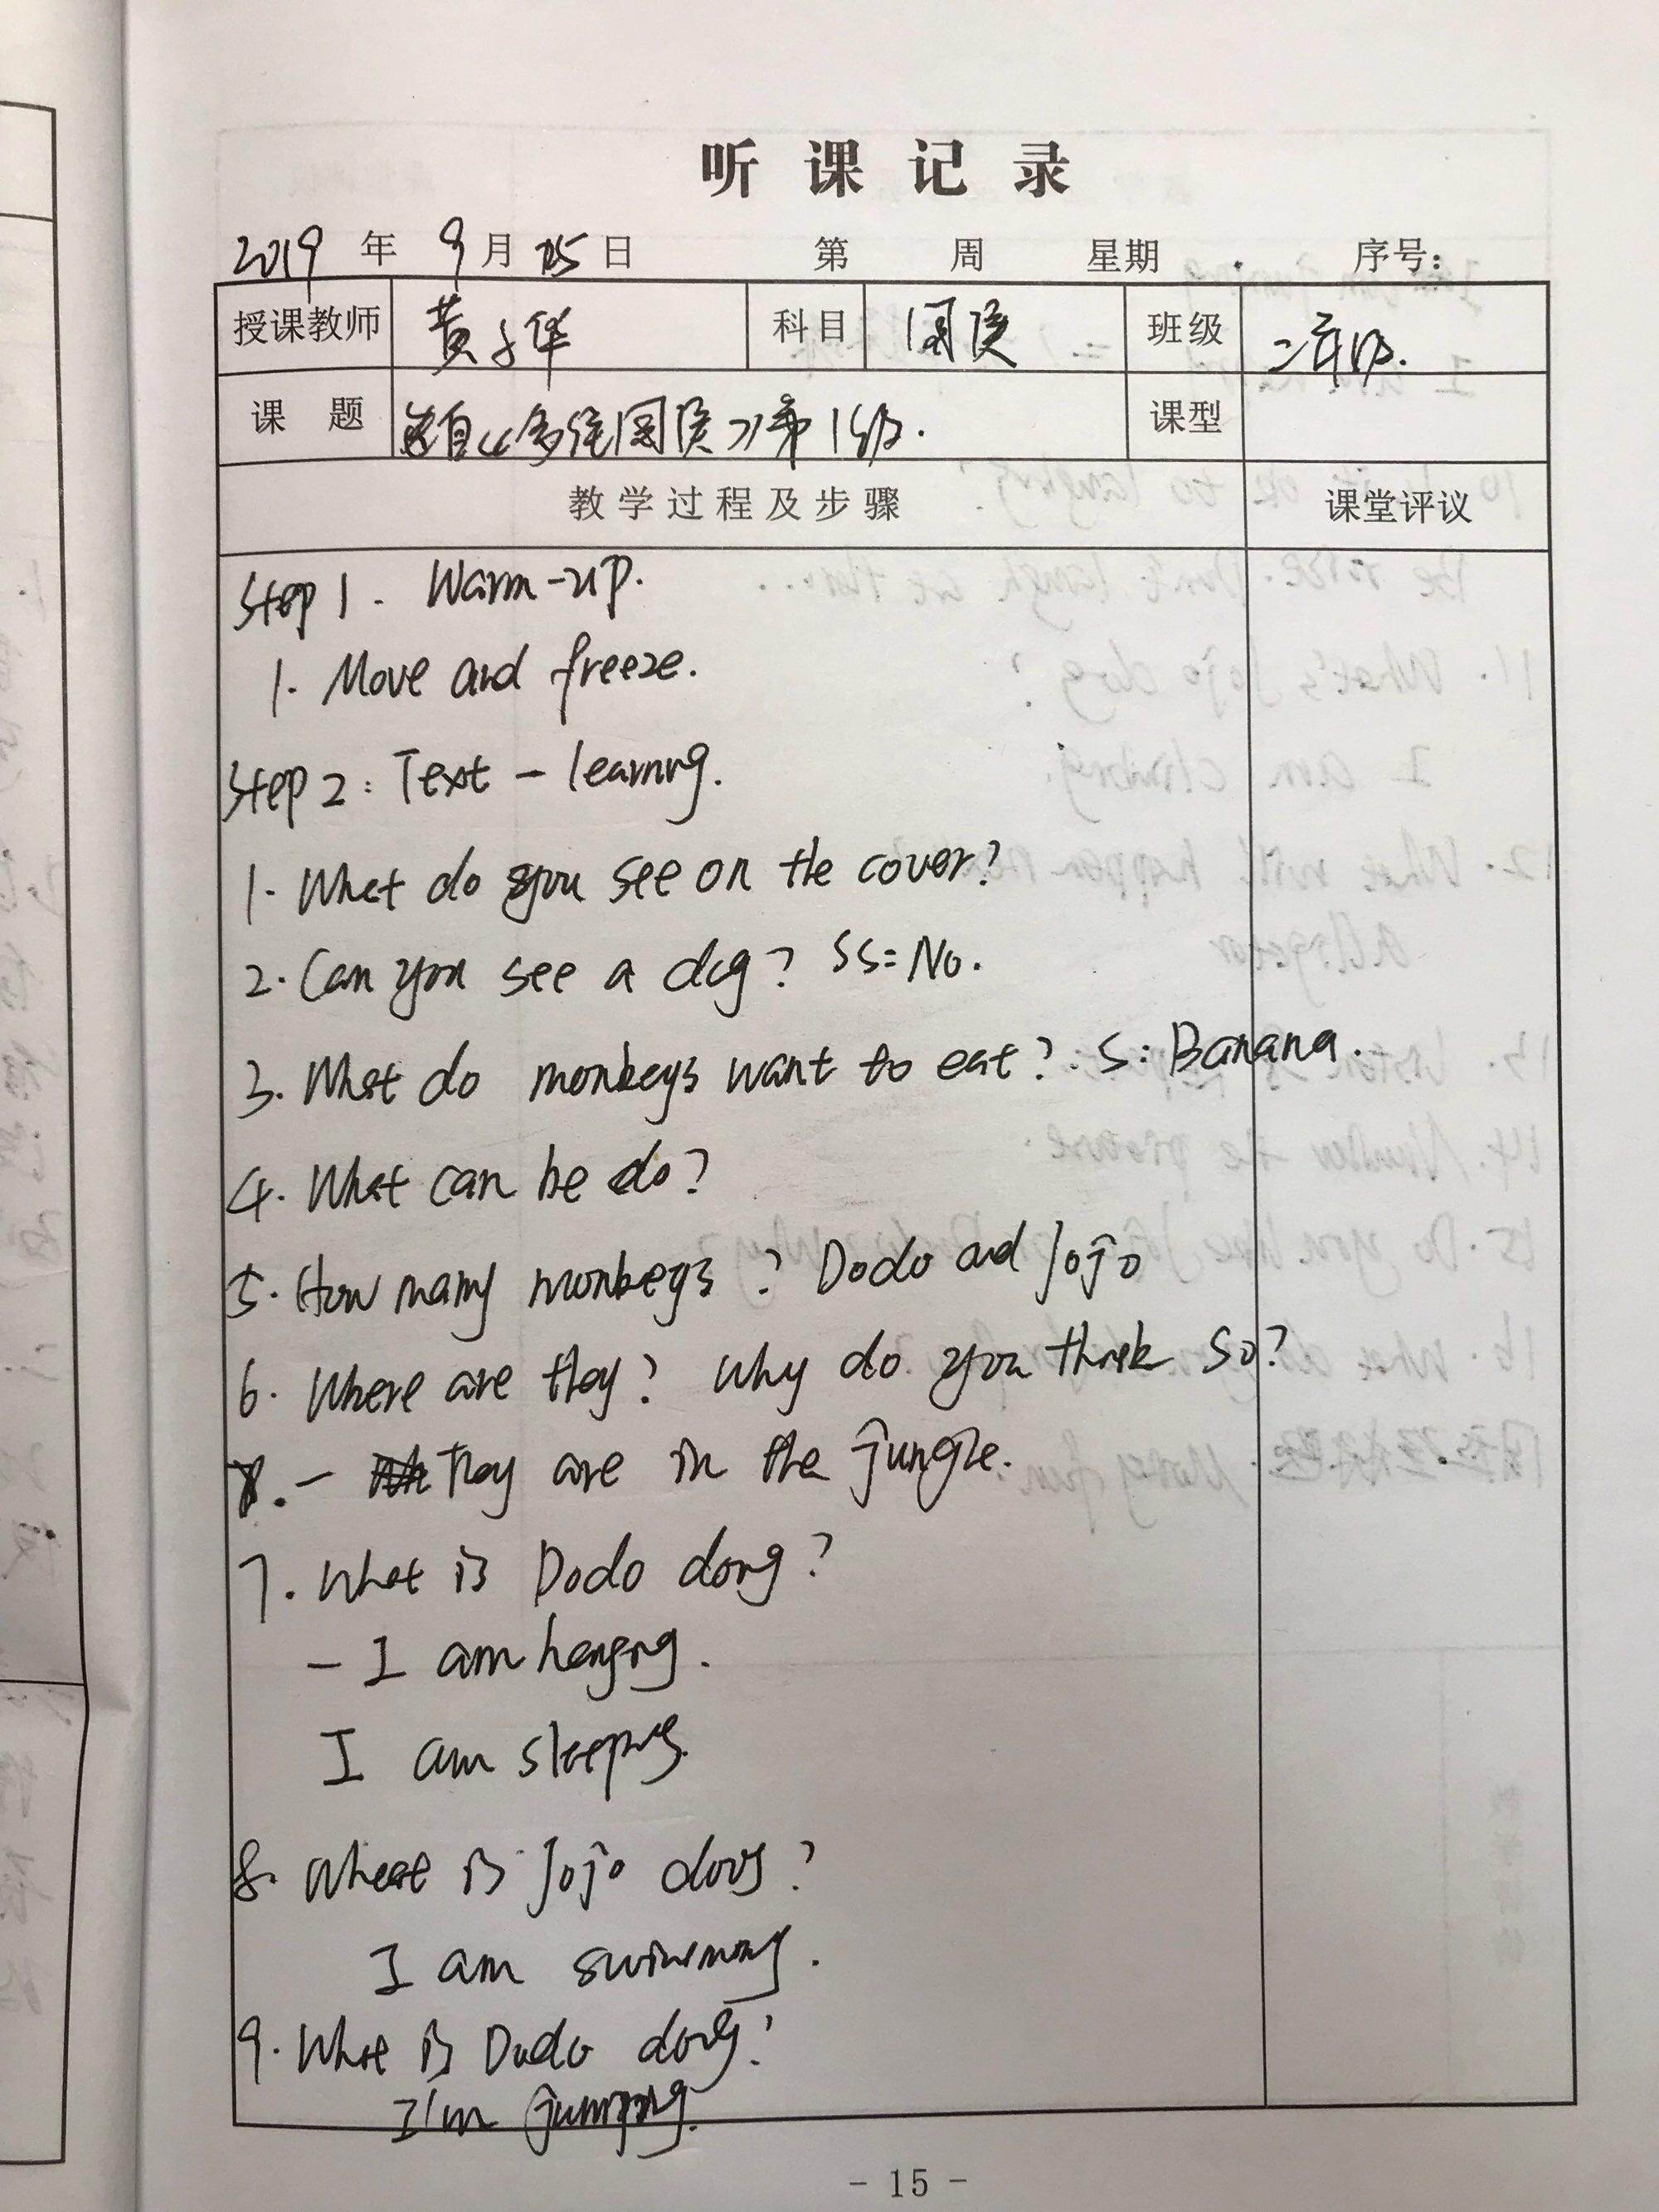 听课记录
2019 年 9 月 25 日 第 周 星期 序号:
授课教师 黄子华 科目 阅读 班级 二年级.
课题 选自《多维阅读》第1级. 课型
教学过程及步骤 课堂评议
Step 1. Warm-up.
1. Move and freeze.
Step 2: Text - learning.
1. What do you see on the cover?
2. Can you see a dog? SS: No.
3. What do monkeys want to eat? S: Banana.
4. What can he do?
5. How many monkeys? Dodo and Jojo
6. Where are they? Why do you think so?
- They are in the jungle.
7. What is Dodo doing?
- I am hanging.
I am sleeping.
8. What is Jojo doing?
I am swimming.
9. What is Dodo doing?
I'm jumping.
- 15 -